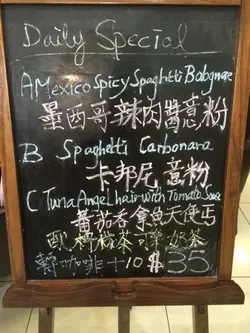 Daily Special
A Mexico Spicy Spaghetti Bolognase
墨西哥辣肉醬意粉
B Spaghetti Carbonara
卡邦尼意粉
C Tuna Angel hair with Tomato Sauce
番茄吞拿魚天使
檸檬茶 奶茶
咖啡+10 $35